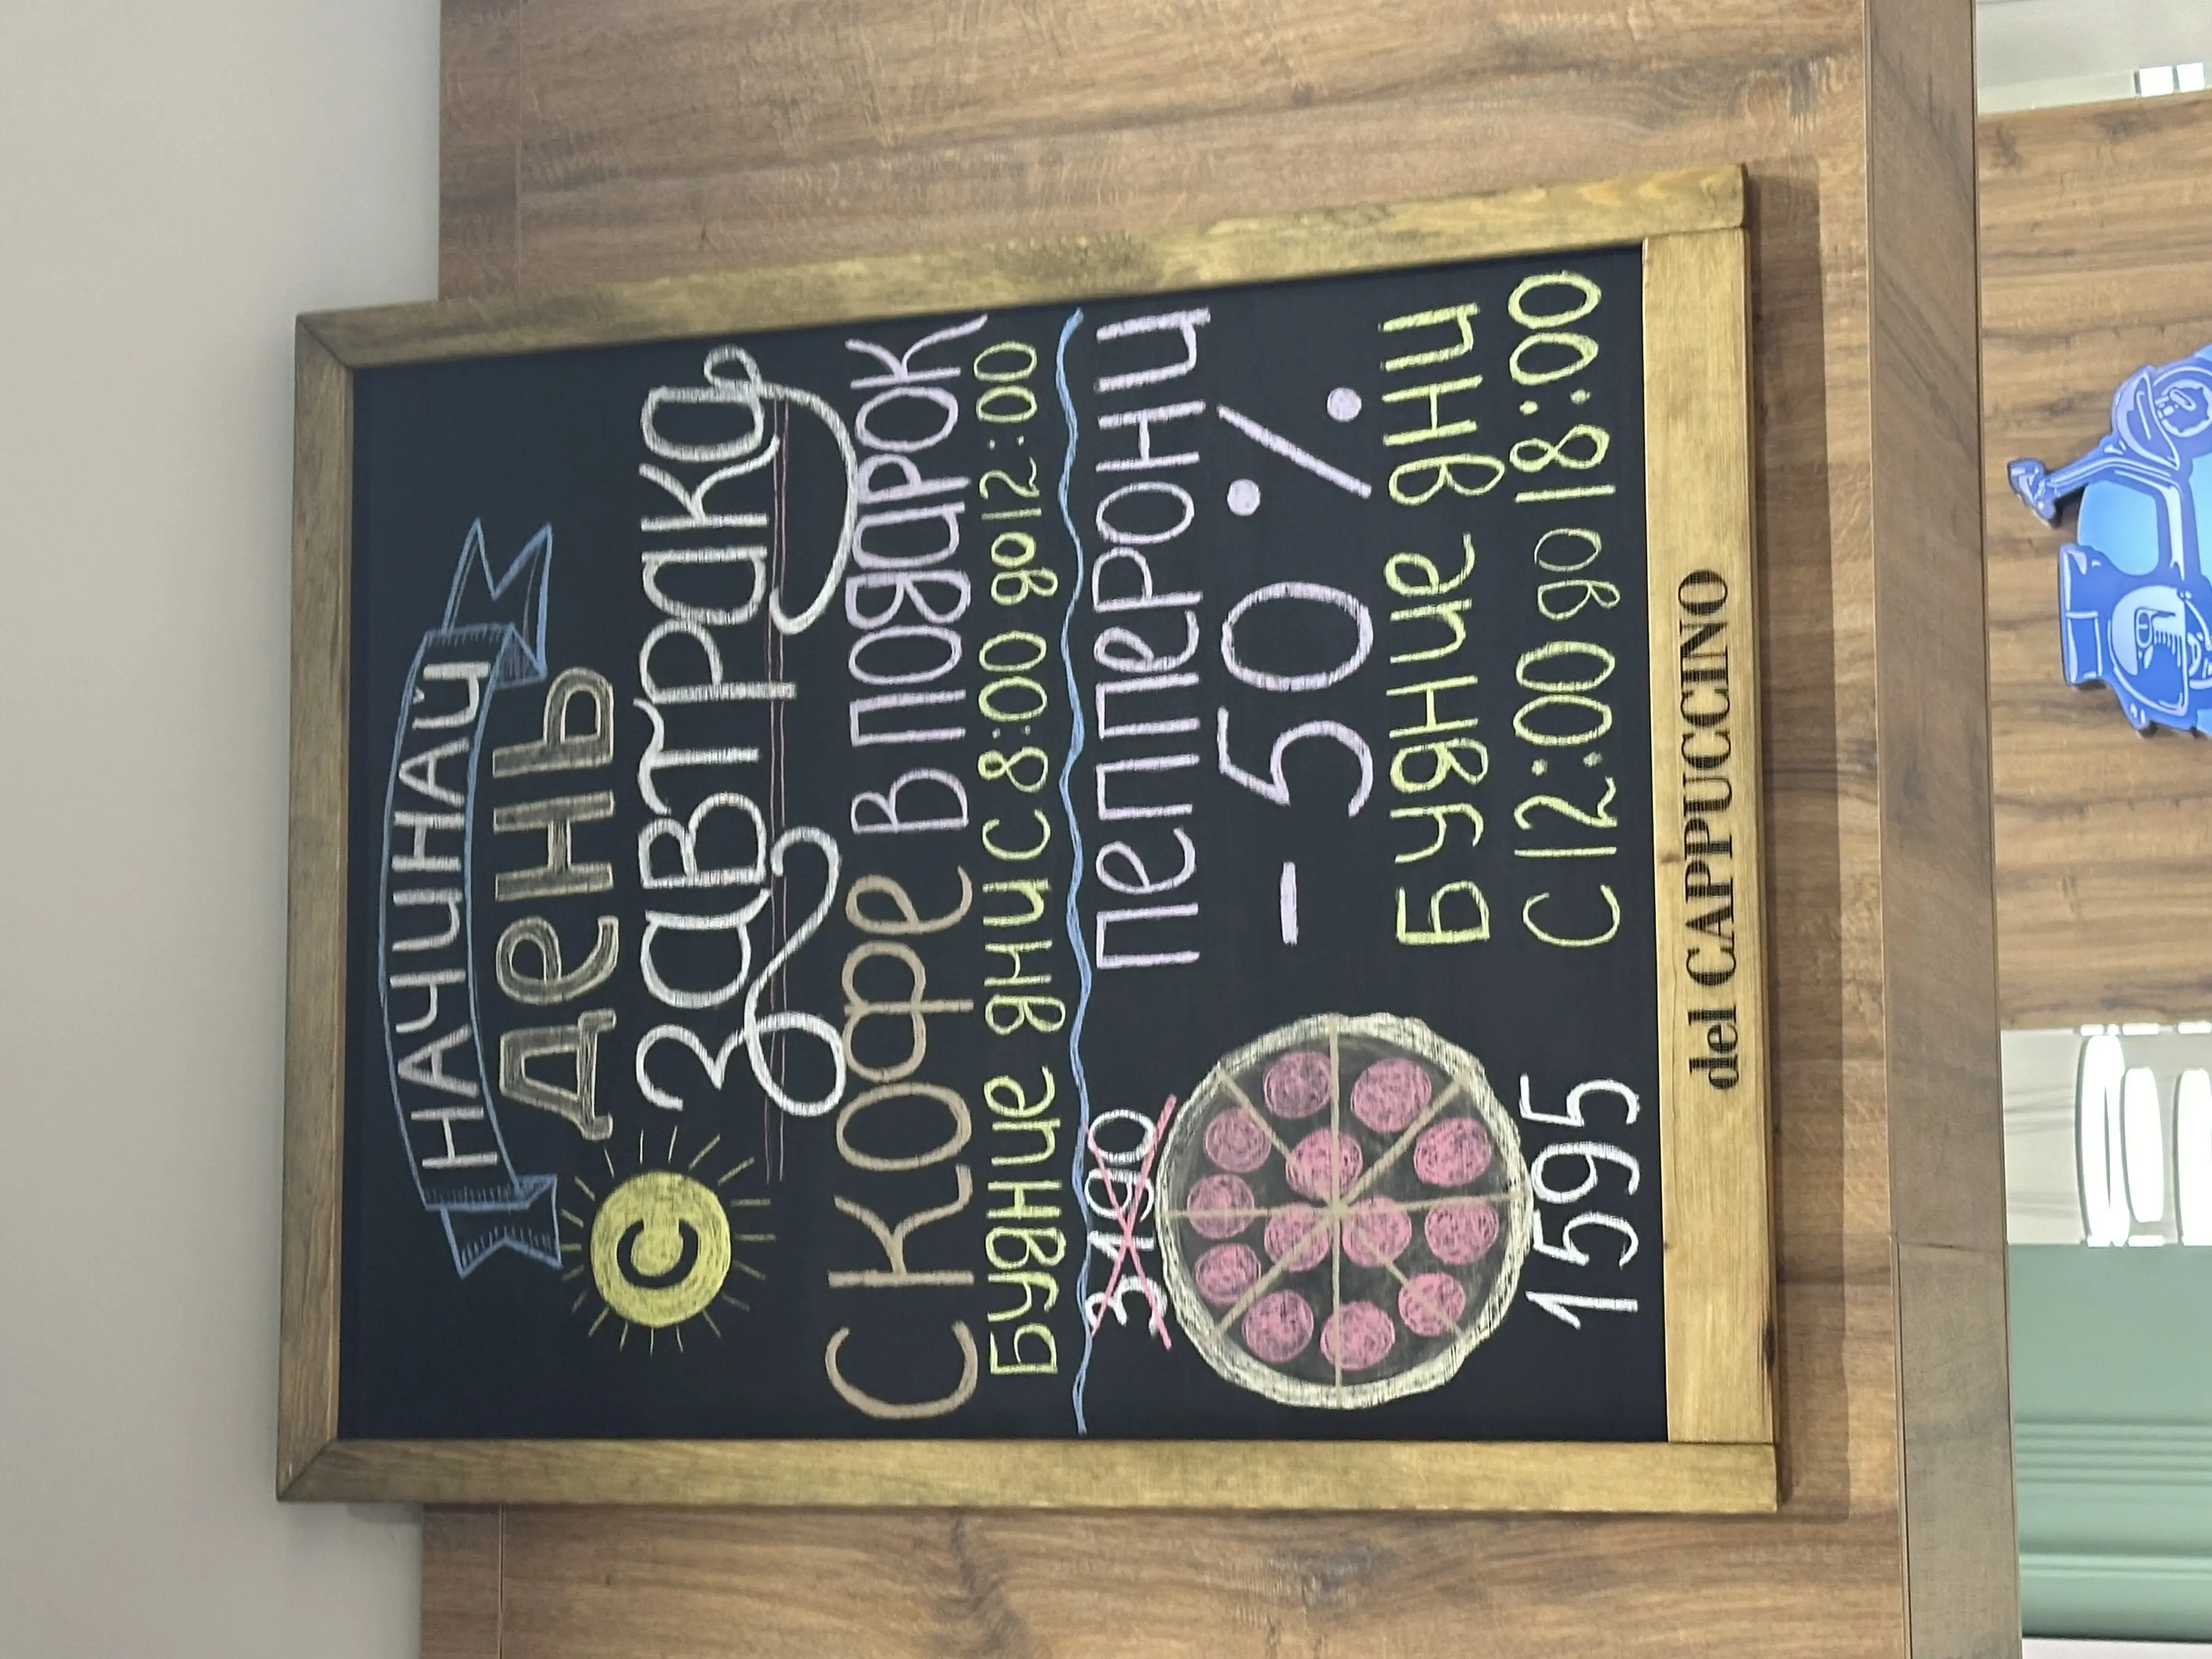 НАЧИНАЙ
День
С
завтрака
С кофе в подарок
Будние дни с 8:00 до 12:00
3190
Пепперони
- 50 %
Будние дни
с 12:00 до 18:00
1595
del CAPPUCCINO